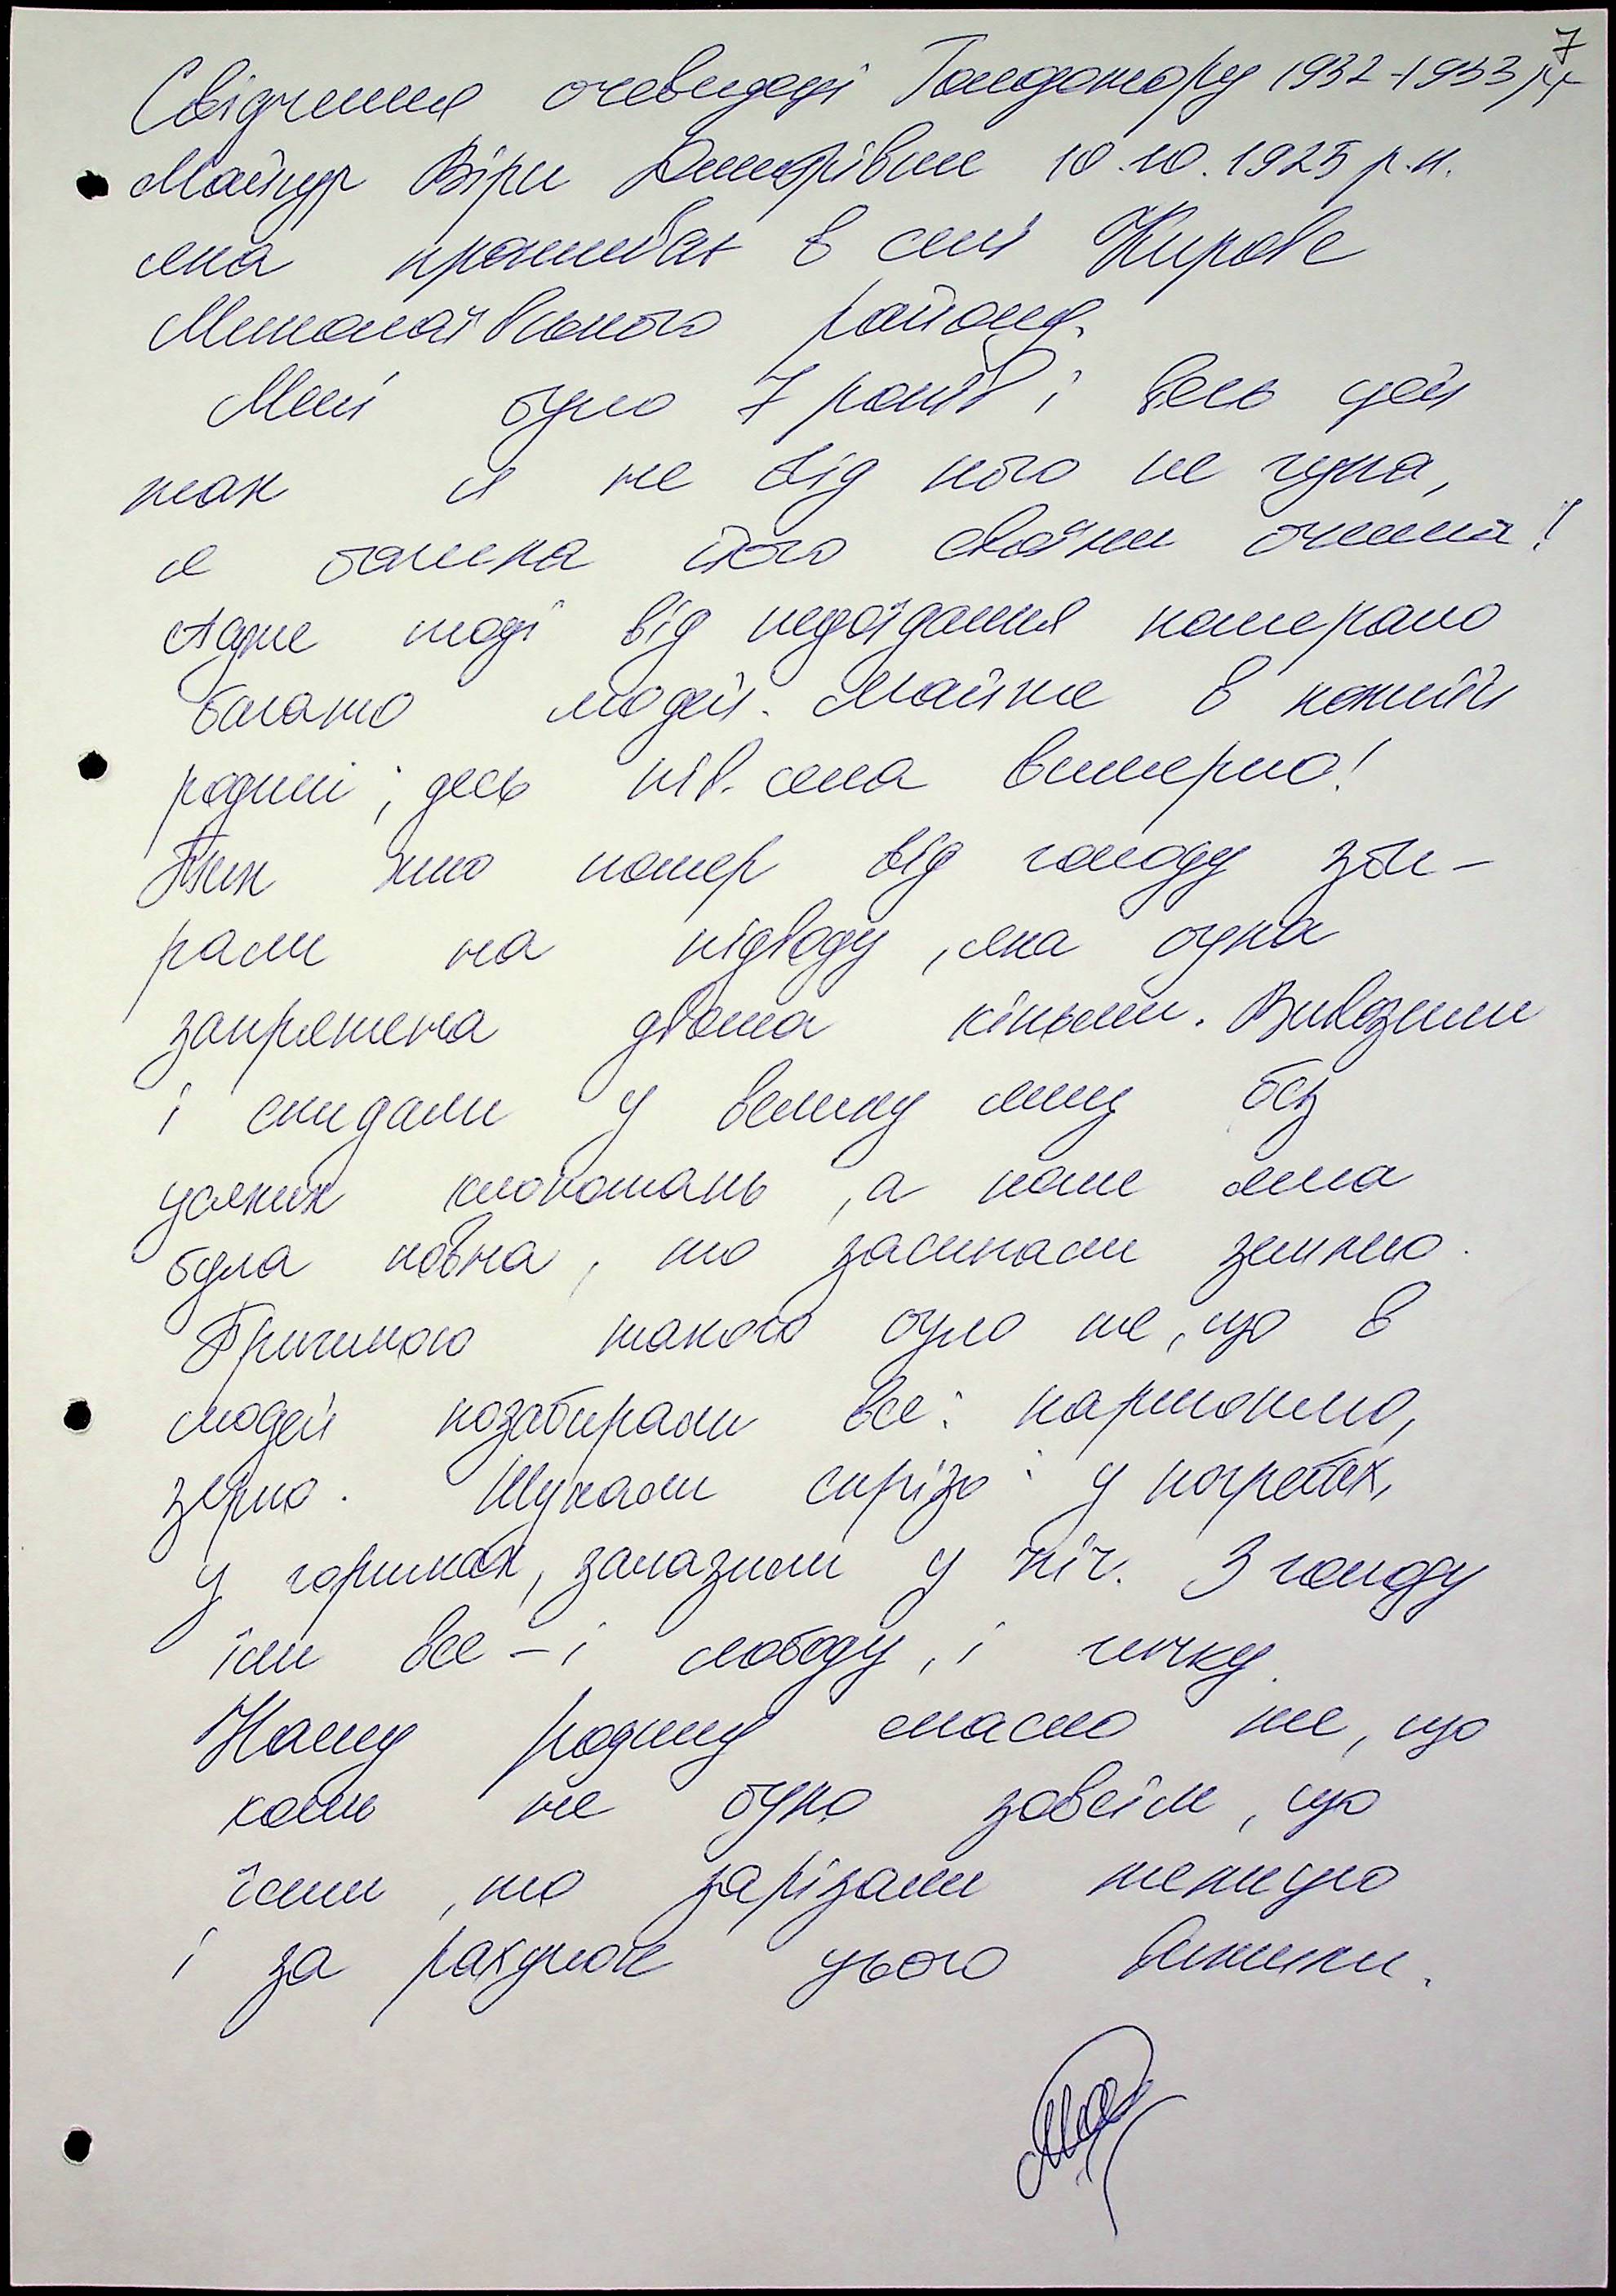 7
Свідчення очевидці Голодомору 1932-1933 рр
Майчур Віри Дмитрівни 10.10.1925 р.н.
яка проживає в селі Кирове
Миколаївського району.
Мені було 7 років і весь цей
жах я не від кого не чула,
я бачила його своїми очима!
Адже тоді від недоїдання померало
багато людей. Майже в кожній
родині; десь пів. села вимерло!
Тих хто помер від голоду зби-
рали на підводу, яка була
запряжена двома кіньми. Вивозили
і скидали у велику яму без
усяких клопотань, а коли яма
була повна, то засипали землею.
Причиною такого було те, що в
людей позабирали все: картоплю,
зерно. Шукали скрізь: у погребах,
у горшках, залазили у піч. З голоду
їли все - і лободу, і гичку.
Нашу родину спасло те, що
коли не було зовсім, що
їсти, то зарізали телицю
і за рахунок цього вижили.